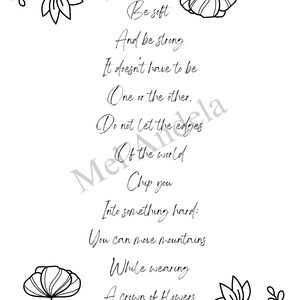 Be soft
And be strong
It doesn't have to be
One or the other.
Do not let the edges
Of the world
Chip you
Into something hard:
You can move mountains
While wearing
A crown of flowers
Mel Andela